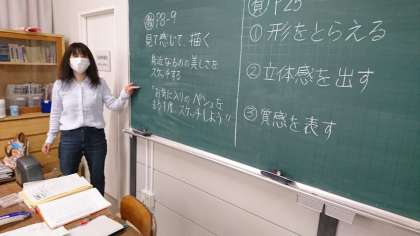 P8-9
見て感じて、描く
身近なものの美しさを
スケッチする
"お気に入りの
スケッチしよう"
P25
①形をとらえる
②立体感を出す
③質感を表す